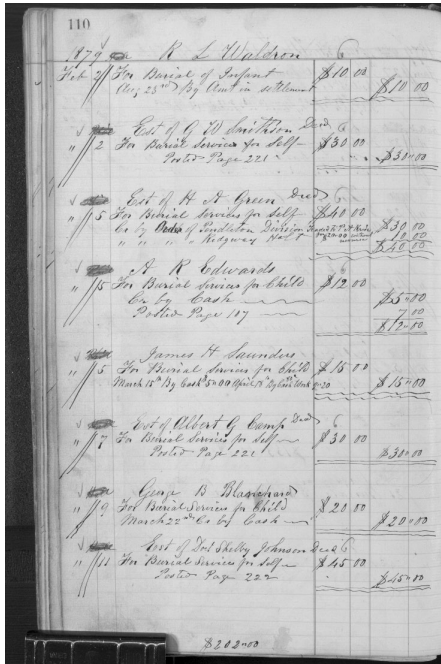 110
1879 R L Waldron 6
Feb 2 For Burial of Infant $10 00
Aug 23rd By Amt in settlement $10 00
Est of G W Smithson Decd 6
" 2 For Burial Services for Self $30 00
Posted Page 221 $30 00
Est of H A Green Decd 6
" 5 For Burial Services for Self $40 00
Cr by Order of Pendleton Division $30 00
" " " " Ridgway 10 00
$40 00
A R Edwards 6
" 5 For Burial Services for Child $12 00
Cr by Cash $5 00
Posted Page 107 7 00
$12 00
James H Saunders
" 5 For Burial Services for Child $15 00
March 15th By Cash 5 00 April $15 00
Est of Albert G Camp Decd 6
" 7 For Burial Services for Self $30 00
Posted Page 221 $30 00
George B Blanchard
" 9 For Burial Services for Child $20 00
March 22nd Cr by Cash $20 00
Est of Dr Shelby Johnson Decd 6
" 11 For Burial Services for Self $45 00
Posted Page 222 $45 00
$202 00